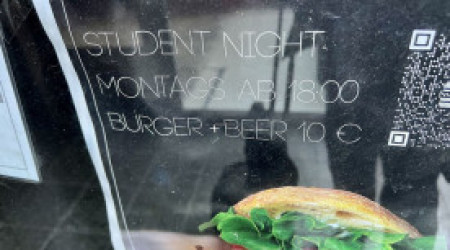 STUDENT NIGHT
MONTAGS AB 18:00
BURGER + BEER 10 €